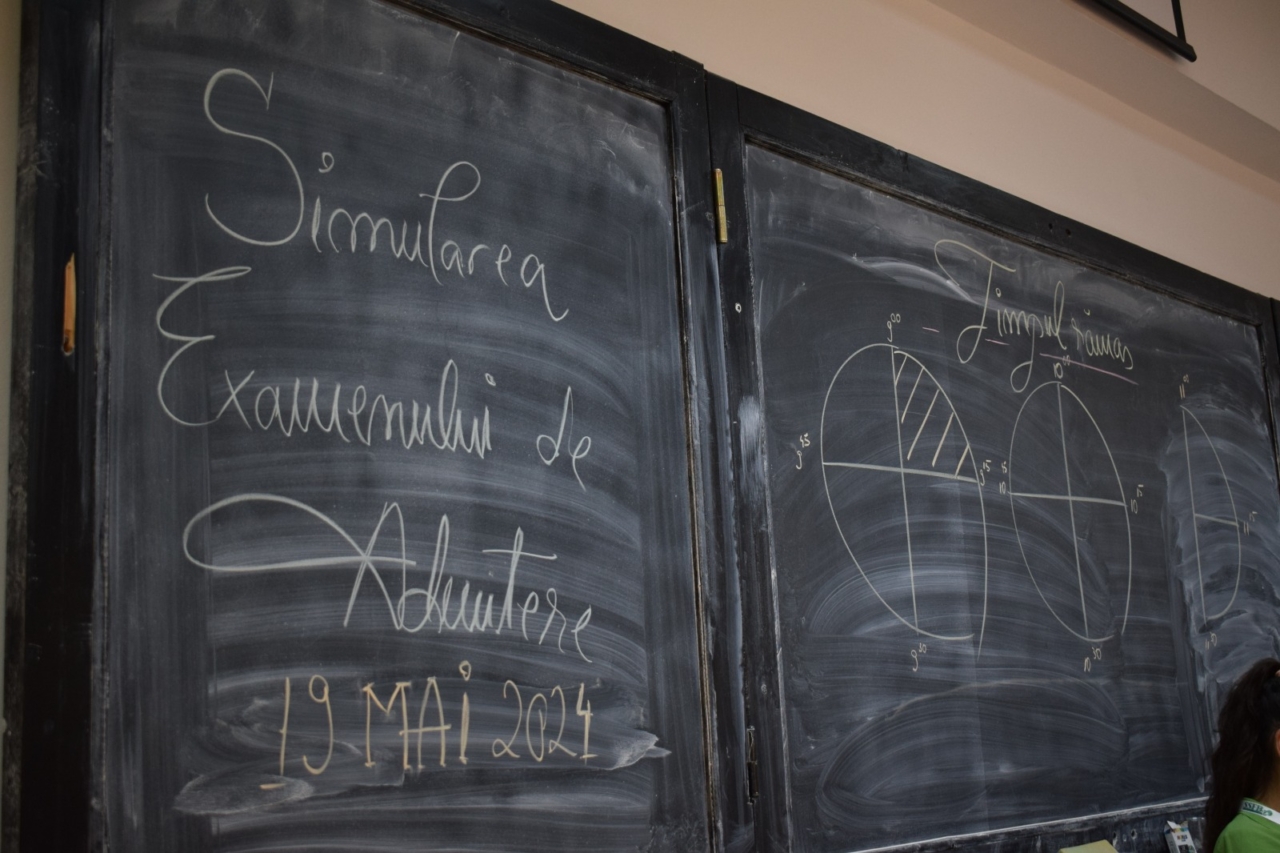 Simularea
Examenului de
Admitere
19 MAI 2024
Timpul rămas
9⁰⁰
9⁴⁵
9¹⁵
9³⁰
10⁰⁰
10⁴⁵
10¹⁵
10³⁰
11⁰⁰
11¹⁵